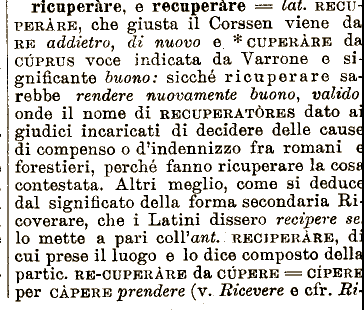 ricuperàre, e recuperàre = lat. RECU-
PERÀRE, che giusta il Corssen viene da
RE addietro, di nuovo e *CUPERÀRE da
CÚPRUS voce indicata da Varrone e si-
gnificante buono: sicché ricuperare sa-
rebbe rendere nuovamente buono, valido
onde il nome di RECUPERATÒRES dato ai
giudici incaricati di decidere delle cause
di compenso o d'indennizzo fra romani e
forestieri, perché fanno ricuperare la cosa
contestata. Altri meglio, come si deduce
dal significato della forma secondaria Ri-
coverare, che i Latini dissero recipere se
lo mette a pari coll'ant. RECIPERÀRE, di
cui prese il luogo e lo dice composto della
partic. RE-CUPERÀRE da CÚPERE = CÍPERE
per CÀPERE prendere (v. Ricevere e cfr. Ri-